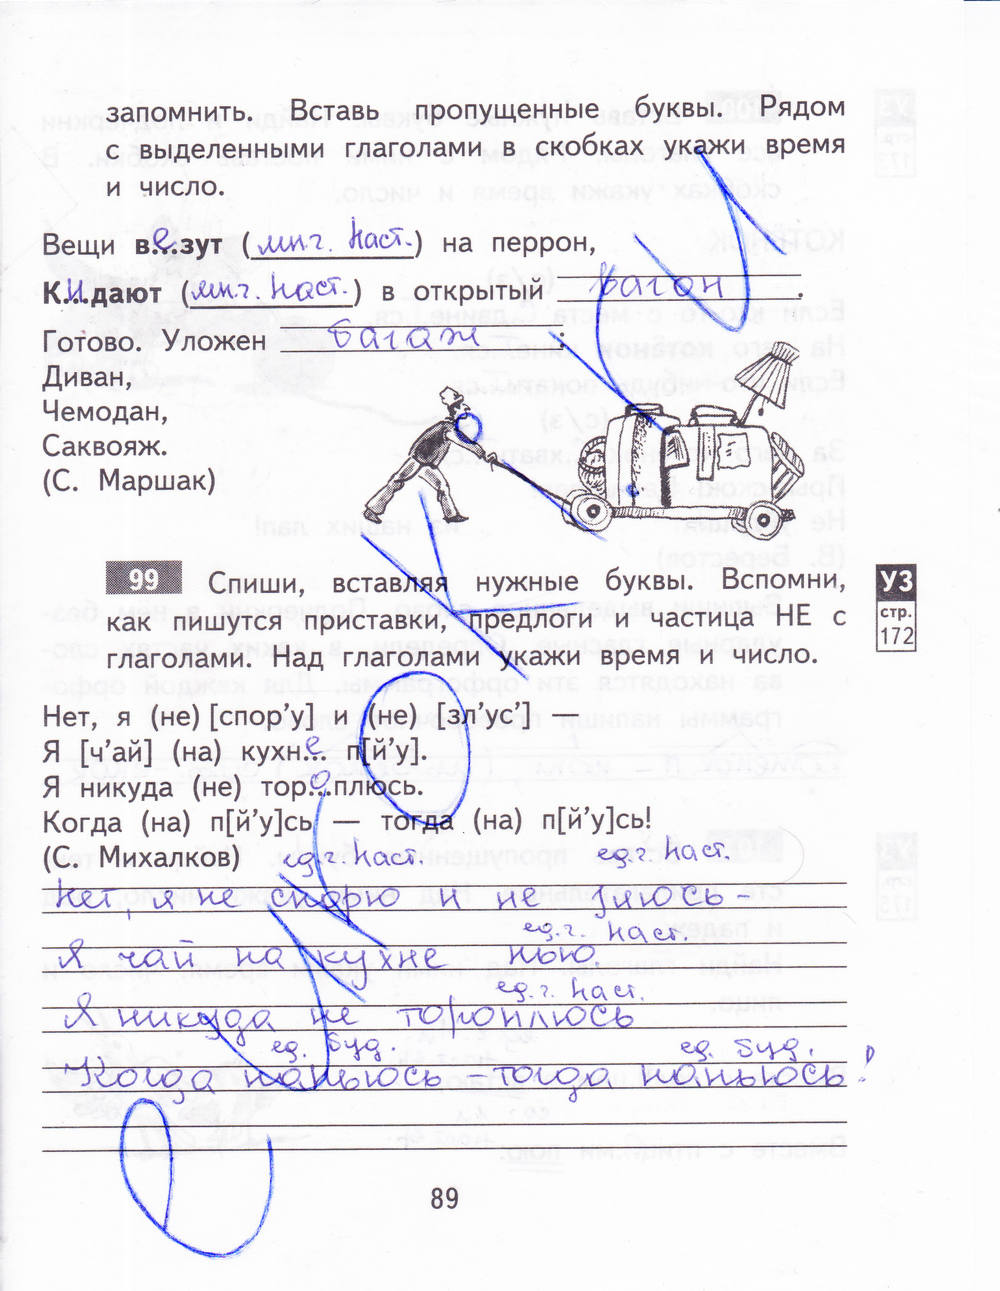 запомнить. Вставь пропущенные буквы. Рядом
с выделенными глаголами в скобках укажи время
и число.
Вещи в.е.зут (мн.ч. наст.) на перрон,
К.И.дают (мн.ч. наст.) в открытый вагон.
Готово. Уложен багаж:
Диван,
Чемодан,
Саквояж.
(С. Маршак)
99 Спиши, вставляя нужные буквы. Вспомни,
как пишутся приставки, предлоги и частица НЕ с
глаголами. Над глаголами укажи время и число.
УЗ
стр.
172
Нет, я (не) [спор’у] и (не) [зл’ус’] —
Я [ч’ай] (на) кухн.е. п[й’у].
Я никуда (не) тор.о.плюсь.
Когда (на) п[й’у]сь — тогда (на) п[й’у]сь!
(С. Михалков)
ед.ч. наст. ед.ч. наст.
Нет, я не спорю и не злюсь –
ед.ч. наст.
Я чай на кухне пью.
ед.ч. наст.
Я никуда не тороплюсь
ед. буд. ед. буд.
Когда напьюсь – тогда напьюсь!
89